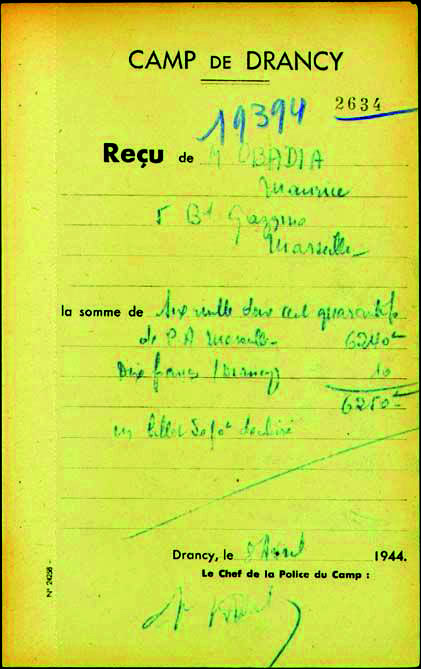 CAMP DE DRANCY
2634
19394
Reçu de M OBADIA
Maurice
5 Bd Gazzino
Marseille
la somme de six mille deux cent quarante
de P.A Marseille 6240
Dix francs (Drancy) 10
6250
un billet 50 f déchiré
Drancy, le Avril 1944.
Le Chef de la Police du Camp :
N° 24258 -